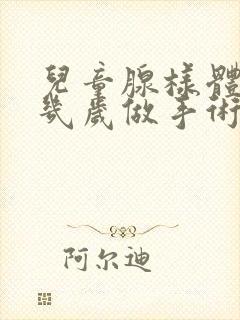 兒童腺樣體
幾歲做手術
阿尔迪